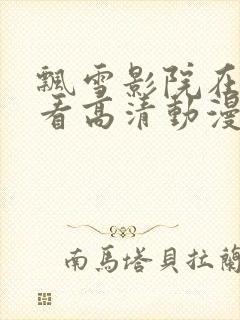 飄雪影院在
看高清動漫
南馬塔貝拉蘭